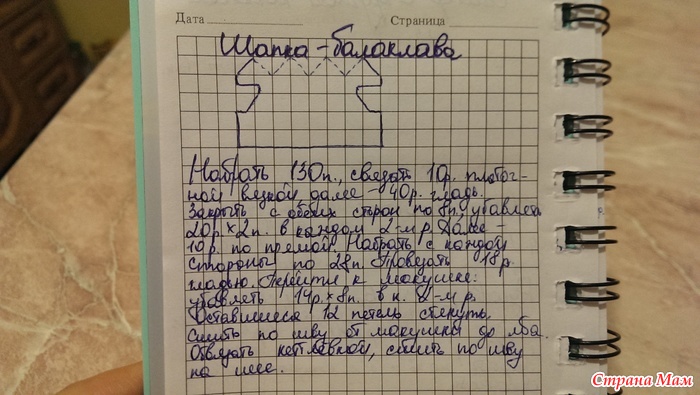 Дата Страница
Шапка-балаклава
Набрать 130п., связать 10р. платоч-
ной вязкой, далее - 40р. гладь.
Закрыть с обеих сторон по 8п., убавлять
20р × 2п. в каждом 2-м р. Далее -
10р. по прямой. Набрать с каждой
стороны по 28п. Провязать 18р.
гладью. Перейти к макушке:
убавлять 14р. × 8п. в к. 2-м р.
Оставшиеся 12 петель стянуть.
Сшить по шву от макушки до лба.
Обвязать кеттлевкой, сшить по шву
на шее.
Страна Мам